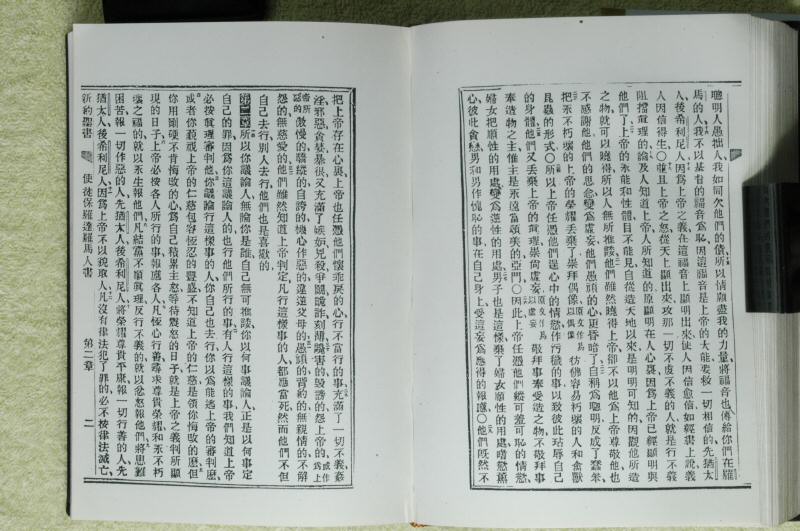 聰明人愚拙人我如同欠他們的債所以情願盡我的力量將福音也傳給你們在羅
馬的人我不以基督的福音爲恥因這福音是上帝的大能要救一切相信的先猶太
人後希利尼人因爲上帝之義在這福音上顯明出來使人因信愈信如經書上說義
人因信得生〇並且上帝之怒從天上顯出來攻那一切不虔不義的人就是行不義
阻擋眞理的論及人知道上帝人所知道的原顯明在人心裏因爲上帝已經顯明與
他們了上帝的永能和性體目不能見自從造天地以來是明明可知的因觀他所造
之物就可以曉得所以人無所推諉他們雖然曉得上帝卻不以他爲上帝尊敬他也
不感謝他他們的思念變爲虛妄他們愚頑的心更昏暗了自稱爲聰明反成了蠢笨
把永不朽壞的上帝的榮耀丟棄了崇拜偶像原文作爲以偶像彷彿容易朽壞的人和禽獸
昆蟲的形式〇所以上帝任憑他們逞心中的情慾作污穢的事以致彼此玷辱自己
的身體他們又丟棄上帝的眞理崇尚虛妄原文作爲以虛妄敬拜事奉受造之物不敬拜事
奉造物之主惟主是永遠當頌美的亞門〇因此上帝任憑他們縱可羞可恥的情慾
婦女把順性的用處變爲逆性的用處男子也是這樣棄了婦女順性的用處嗜慾薰
心彼此貪戀男和男作愧恥的事在自己身上受這妄爲應得的報應〇他們旣然不
把上帝存在心裏上帝也任憑他們懷乖戾的心行不當行的事充滿了一切不義姦
淫邪惡貪婪暴很又充滿了嫉妒兇殺爭鬭詭詐刻薄讒害的毀謗的怨上帝的或作爲上
帝所怨的傲慢的驕縱的自誇的機心作惡的違逆父母的愚頑的背約的無親情的不解
怨的無慈愛的他們雖然知道上帝判定凡行這樣事的人都應當死然而他們不但
自己去行別人去行他們也是喜歡的
第二章所以你議論人無論你是誰自己無可推諉你以何事議論人正是以何事定
自己的罪因爲你這議論人的也行他們所行的事有人行這樣的事我們知道上帝
必按眞理審判他你議論行這樣事的人你自己也去行你以爲能逃上帝的審判麼
或者你藐視上帝的大慈包容恆忍的豐盛不知道上帝的仁慈是領你悔改的麼但
你用剛硬不肯悔改的心爲自己積累主怒等待震怒的日子就是上帝之義判所顯
現的日子上帝必按各人所行的事報應各人凡恆心行善尋求尊貴榮耀和永不朽
壞之福的就以永生報他們凡結黨不順眞理反行不義的就以忿怒報他們將患難
困苦報一切作惡的人先猶太人後希利尼人將榮耀尊貴平康報一切行善的人先
猶太人後希利尼人因爲上帝不以貌取人凡沒有律法犯了罪的必不按律法滅亡
新約聖書 使徒保羅達羅馬人書 第二章 二